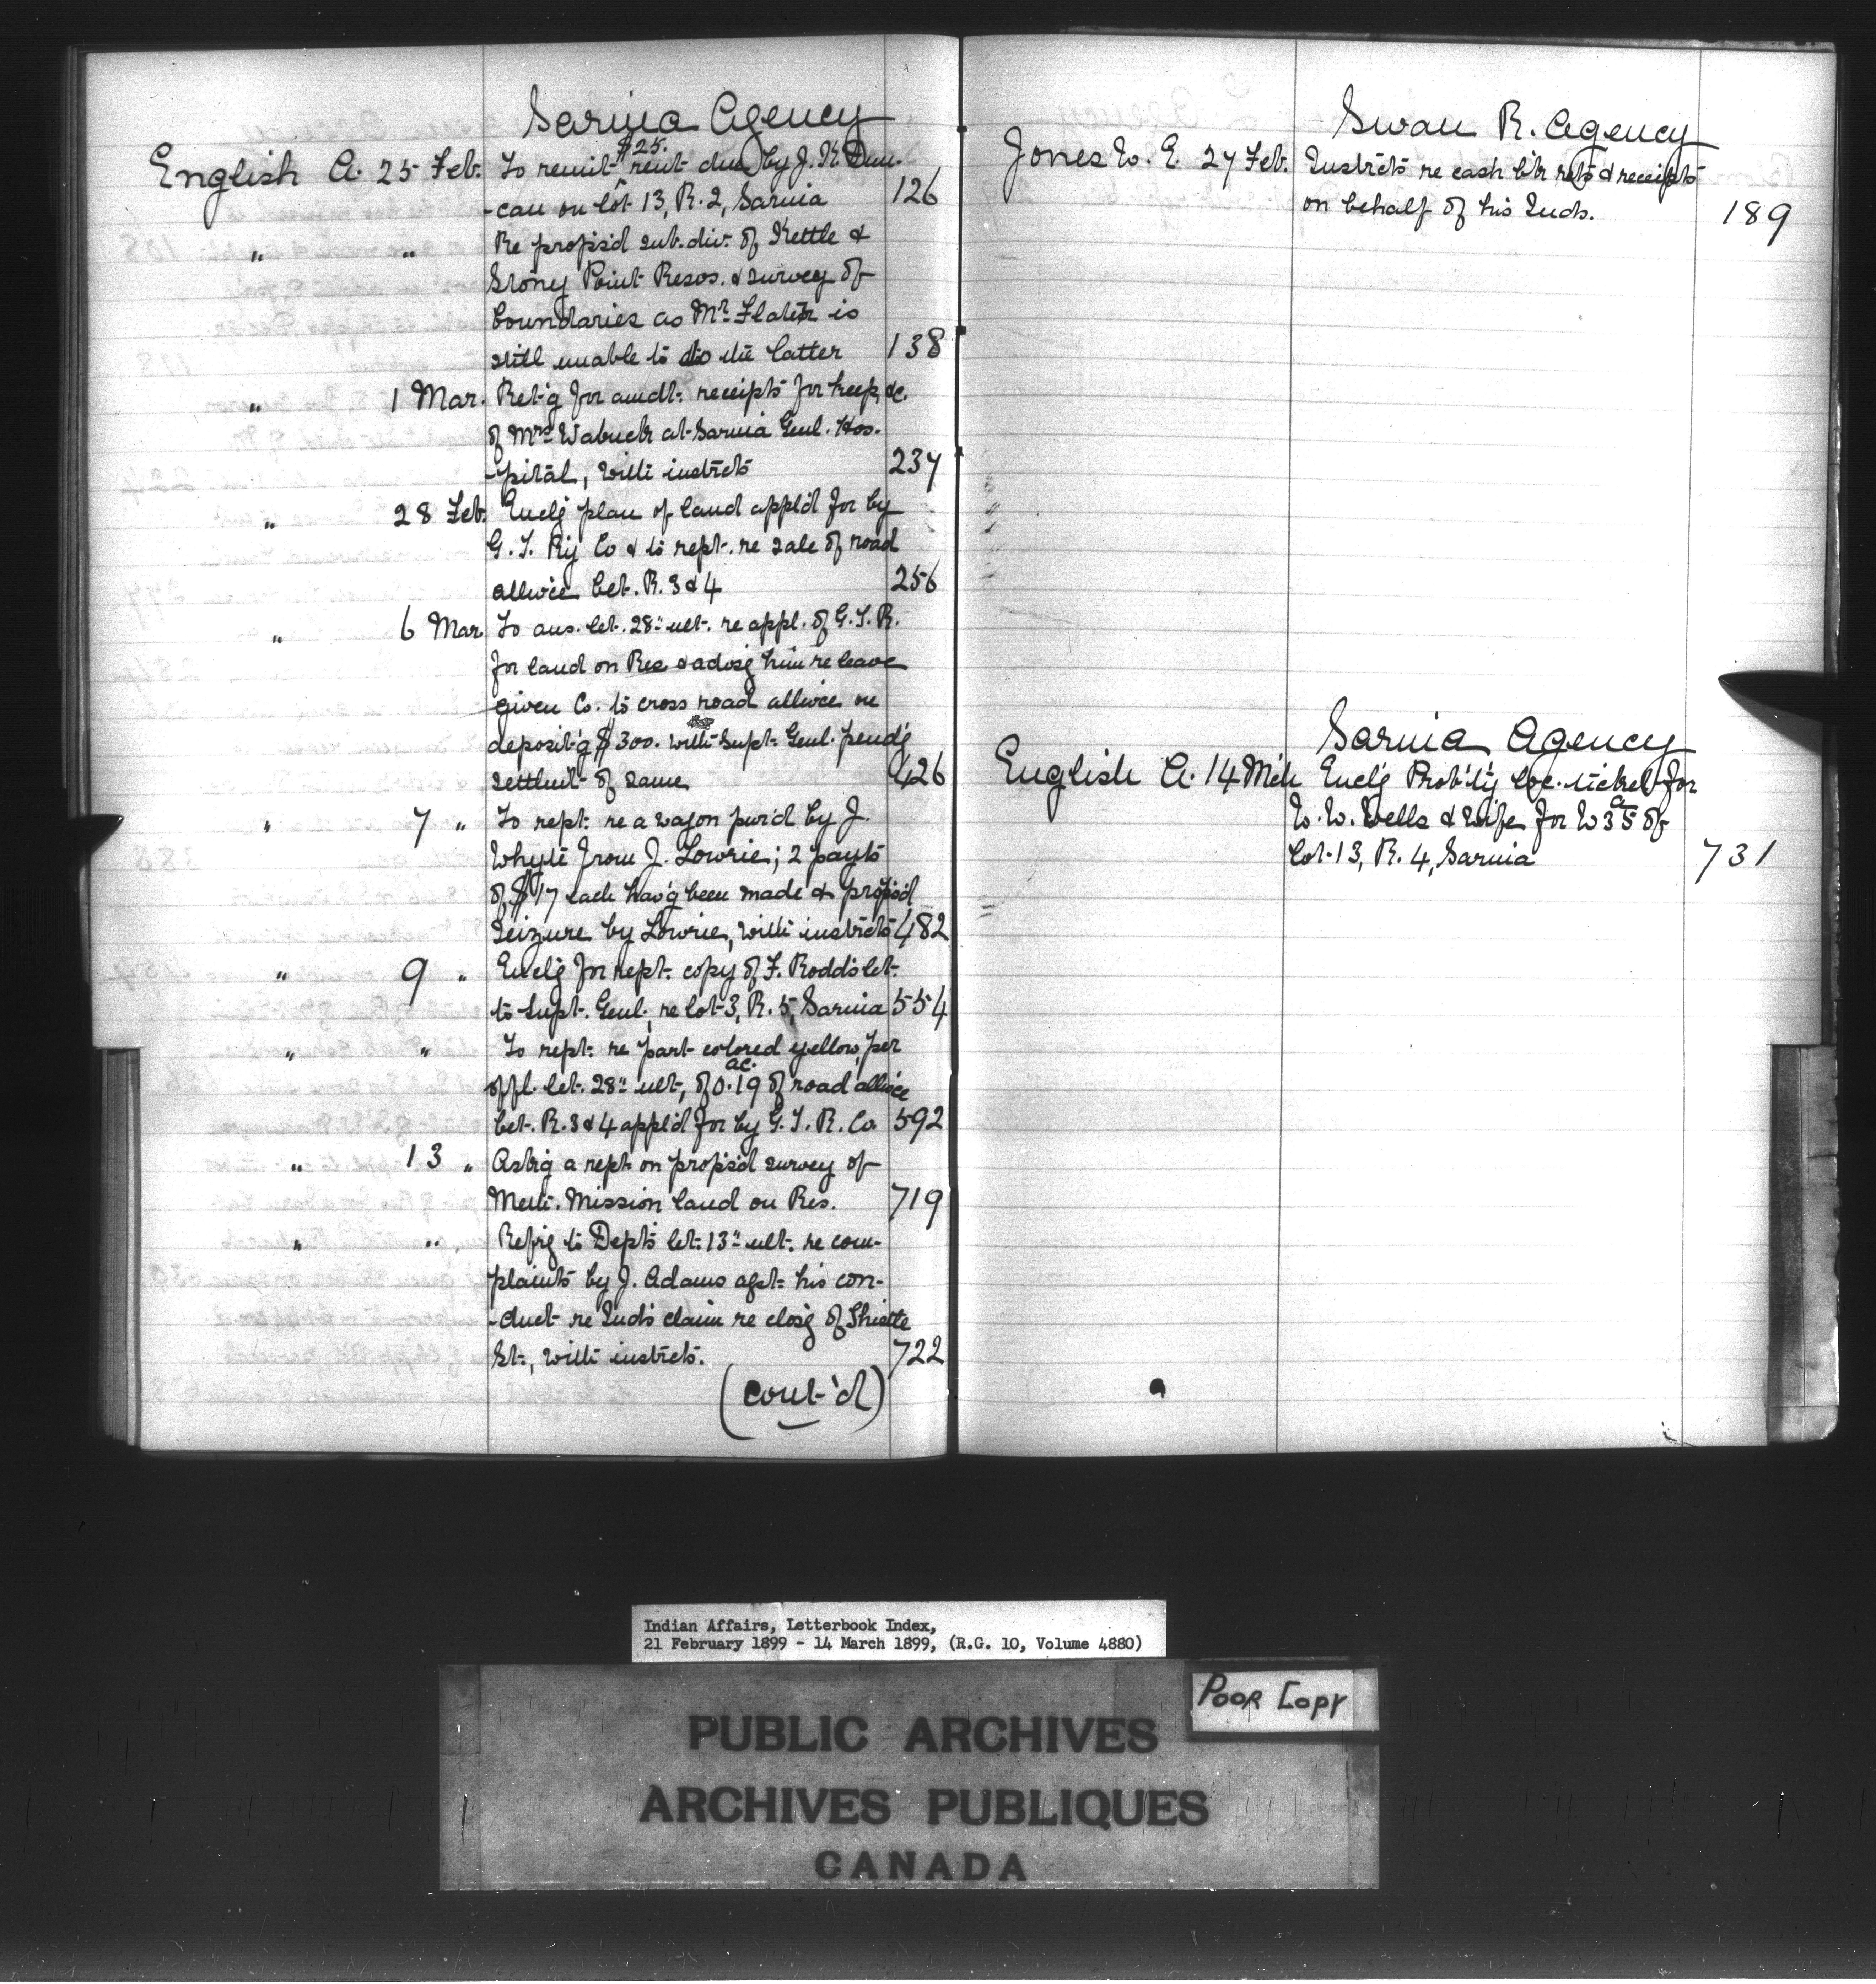 Sarnia Agency
English A. 25 Feb. To remit $25. rent due by J. K. Dun-
-can on lot 13, R. 2, Sarnia 126
" " Re propsd sub. div. of Kettle &
Stony Point Resos. & survey of
boundaries as Mr. Flater is
still unable to do the latter 138
" 1 Mar. Ret'g for amdt. receipts for keep, &c.
of Mrs Wabuck at Sarnia Genl. Hos-
-pital, with instrcts 237
" 28 Feb. Encl'g plan of land appl'd for by
G. T. Ry Co & to rept. re sale of road
allwce bet. R. 3 & 4 256
" 6 Mar. To ans. let. 28" ult. re appl. of G. T. R.
for land on Res & advsg him re leave
given Co. to cross road allwce on
deposit'g $300. with Supt. Genl. pend'g
settlmt of same 426
" 7 " To rept. re a wagon purd by J.
Whyte from J. Lowrie; 2 payts
of $17 each hav'g been made & propsd
seizure by Lowrie, with instrcts 482
" 9 " Encl'g for rept. copy of F. Rodd's let.
to Supt. Genl., re lot 3, R. 5, Sarnia 554
" " To rept. re part colored yellow, per
offl. let. 28" ult., of 0.19 ac. of road allwce
bet. R. 3 & 4 appl'd for by G. T. R. Co. 592
" 13 " Ask'g a rept. on propsd survey of
Meth. Mission land on Res. 719
" " Refr'g to Dept's let. 13" ult. re com-
plaints by J. Adams agst. his con-
-duct re Ind's claim re clos'g of
St., with instrcts. 722
(cont'd)
Swan R. Agency
Jones W. E. 27 Feb. Instrcts re cash b'k rets & receipts
on behalf of his Inds. 189
Sarnia Agency
English A. 14 Mch Encl'g Prob'ty loc. ticket for
W. W. Wells & Wife for W 35 a of
lot 13, R. 4, Sarnia 731
Indian Affairs, Letterbook Index,
21 February 1899 - 14 March 1899, (R.G. 10, Volume 4880)
POOR COPY
PUBLIC ARCHIVES
ARCHIVES PUBLIQUES
CANADA